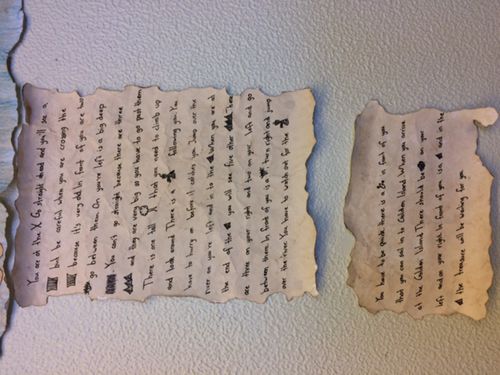 You are at the X Go straight ahead and you'll see a
but be careful when you are crossing the
because it's very old. In front of you are two
go between them. On you're left is a big deep
You can't go straight because there are three
and they are very big so you have to go past them
There is one tall X that you need to climb up
and look around. There is a following you. You
have to hurry on before it catches you. Jump over the
river on you're left and in to the When you are at
the end of the you will see five other There
are three on your right and two on your left and go
between them. In front of you is a turn right and jump
over the river. You have to watch out for the
You have to be quick there is a in front of you
that you can sail in to Golden Island. When you arrive
at the Golden Island There should be on your
left and on your right. In front of you is a and in the
the treasure will be waiting for you